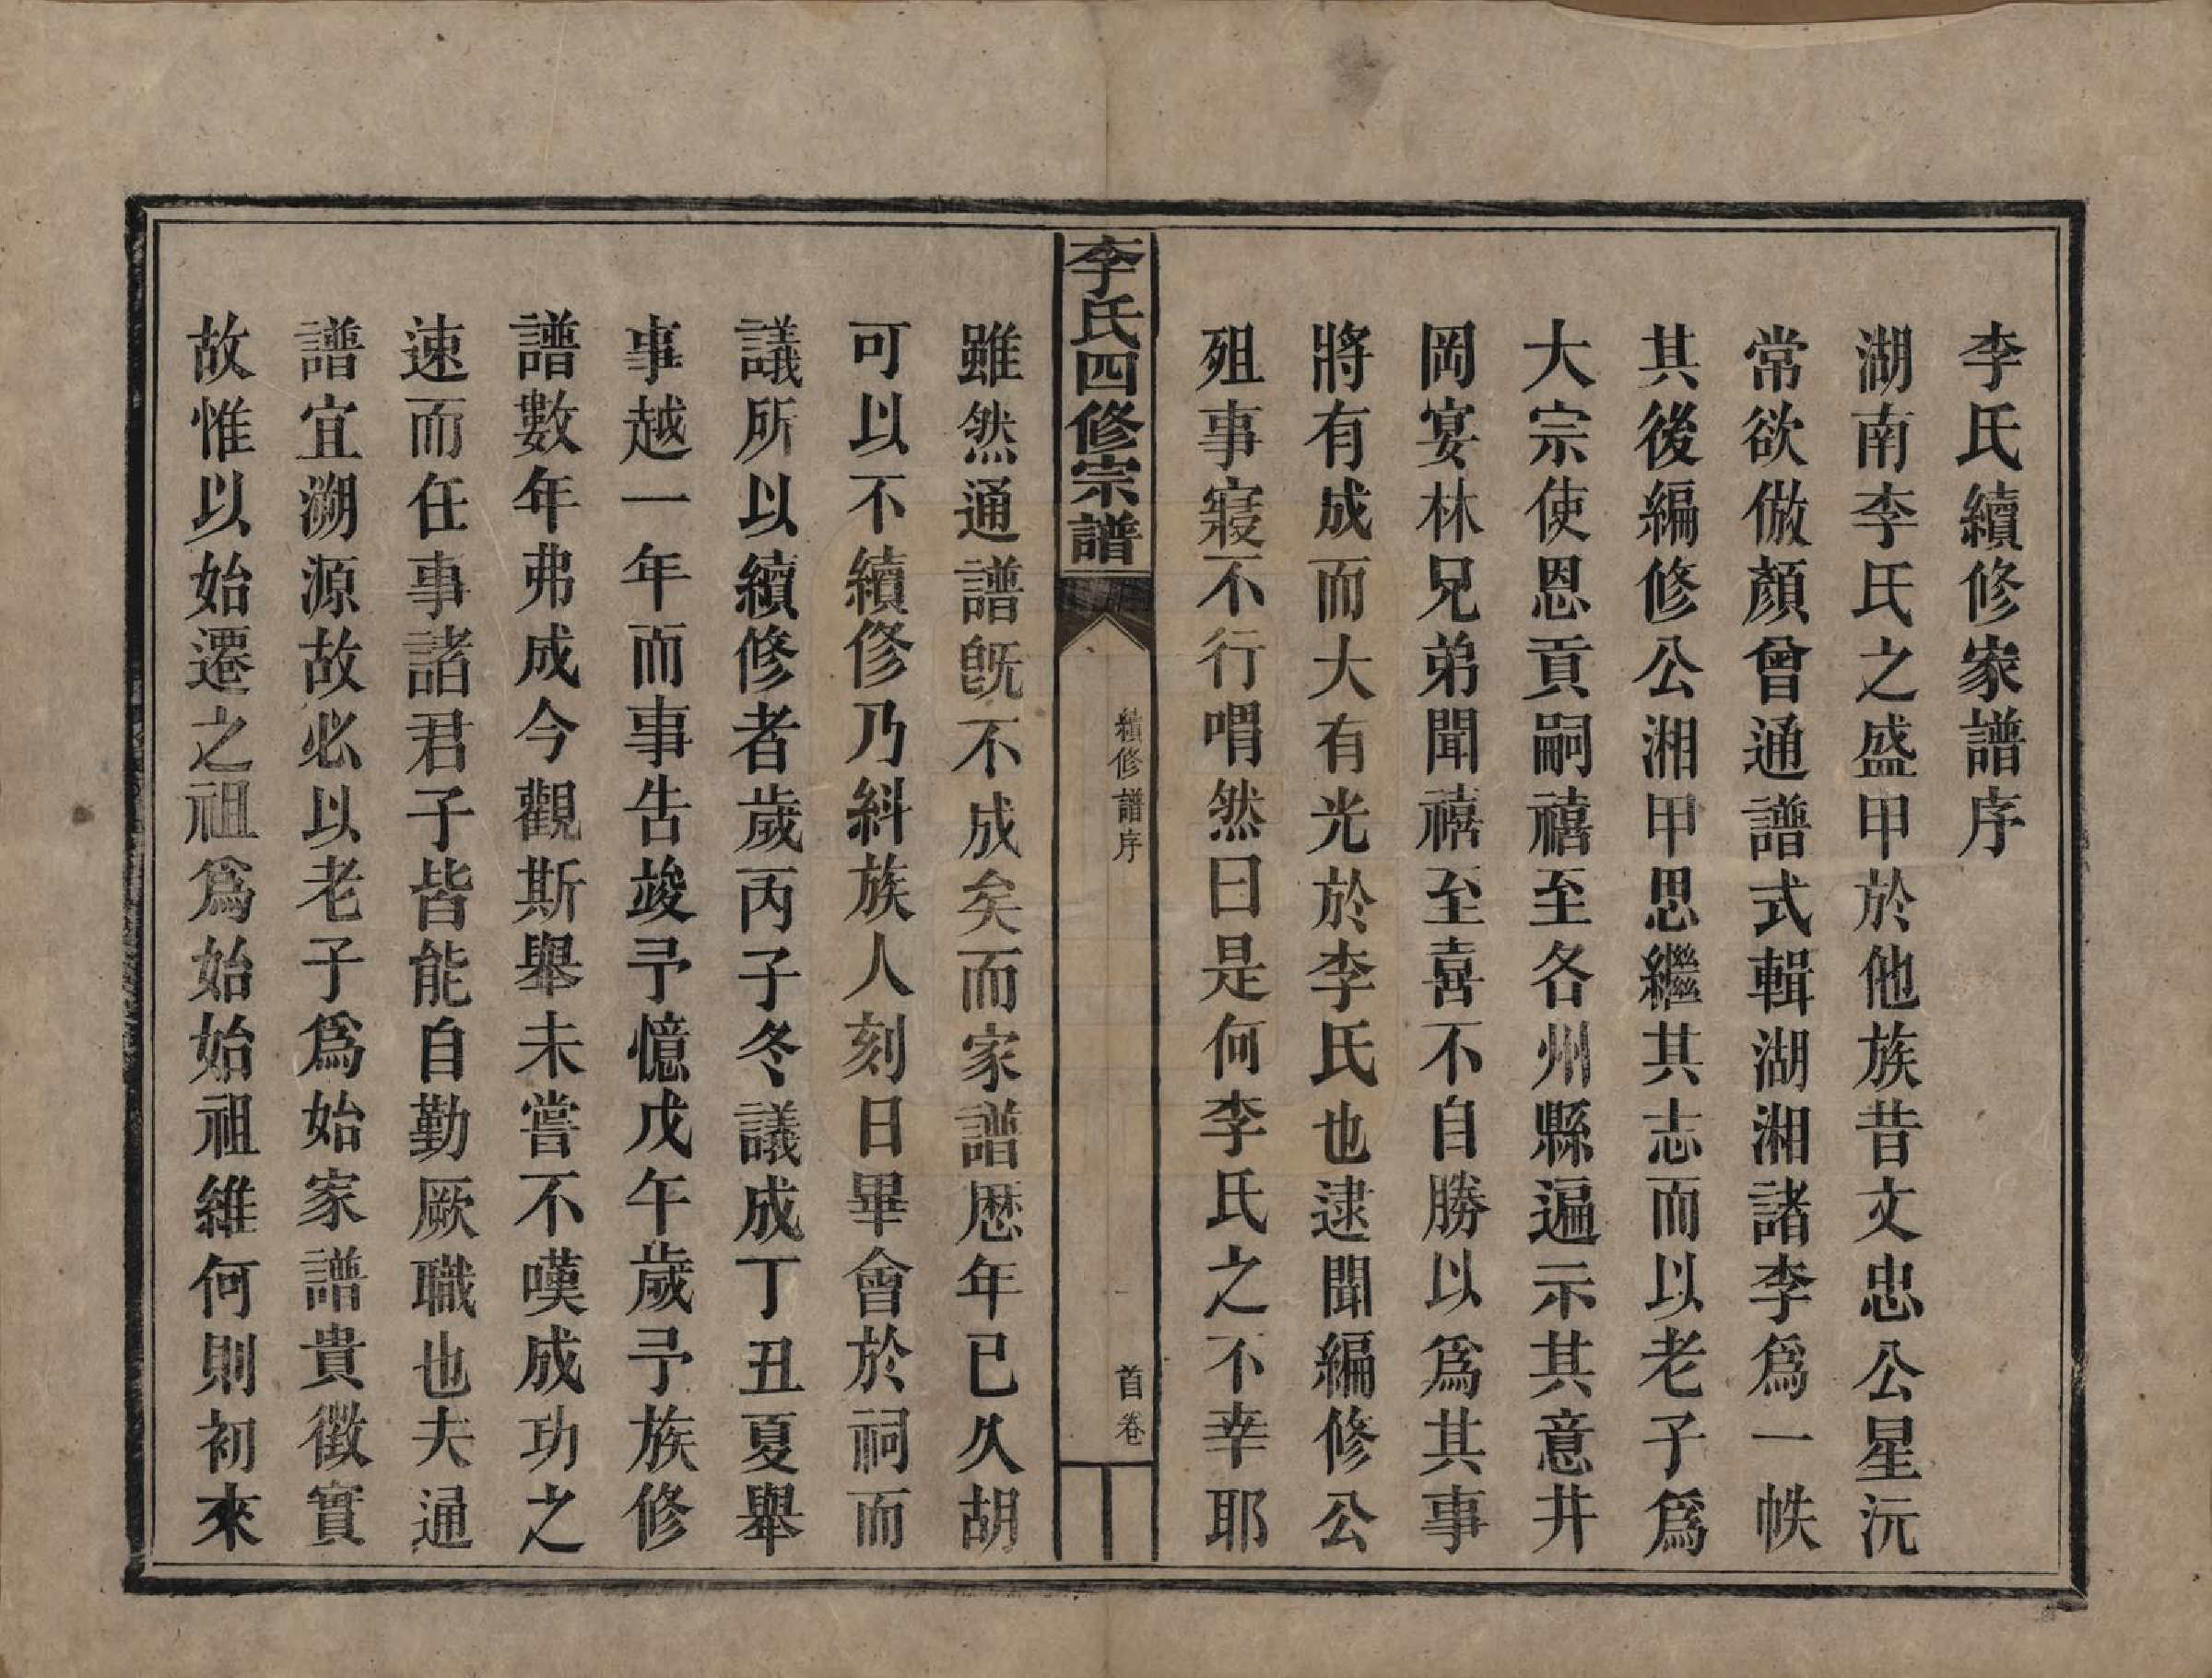 李氏續修家譜序
湖南李氏之盛甲於他族昔文忠公星沅
常欲倣顏曾通譜式輯湖湘諸李爲一帙
其後編修公湘甲思繼其志而以老子爲
大宗使恩貢嗣禧至各州縣遍示其意井
岡宴林兄弟聞禧至喜不自勝以爲其事
將有成而大有光於李氏也逮聞編修公
殂事寢不行喟然曰是何李氏之不幸耶
李氏四修宗譜
續修譜序
一
首卷
雖然通譜旣不成矣而家譜歷年已久胡
可以不續修乃糾族人刻日畢會於祠而
議所以續修者歲丙子冬議成丁丑夏舉
事越一年而事告竣予憶戊午歲予族修
譜數年弗成今觀斯舉未嘗不嘆成功之
速而任事諸君子皆能自勤厥職也夫通
譜宜溯源故必以老子爲始家譜貴徵實
故惟以始遷之祖爲始始祖維何則初來